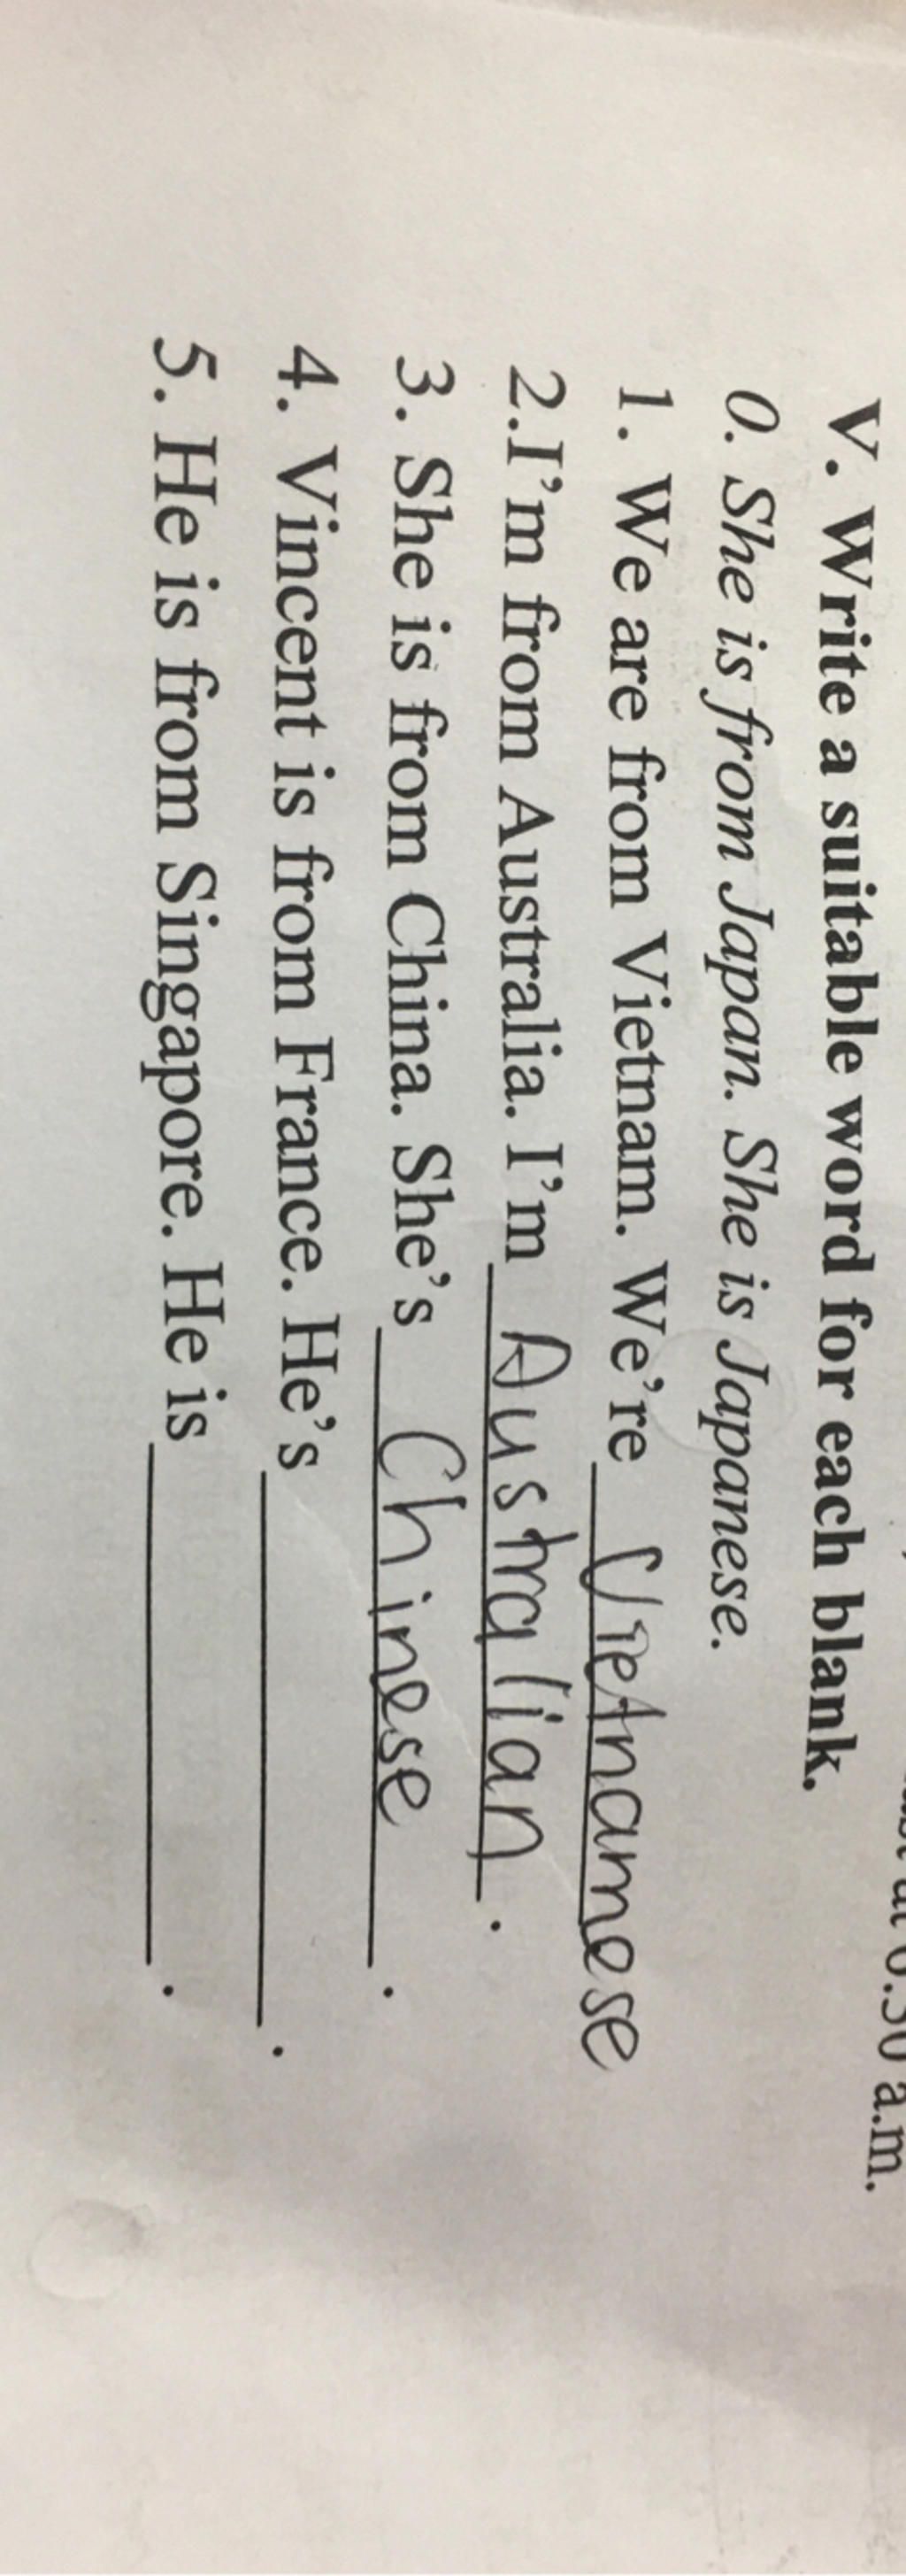 at 6.30 a.m.
V. Write a suitable word for each blank.
0. She is from Japan. She is Japanese.
1. We are from Vietnam. We're Vietnamese
2.I'm from Australia. I'm Australian.
3. She is from China. She's Chinese.
4. Vincent is from France. He's ____________.
5. He is from Singapore. He is ____________.